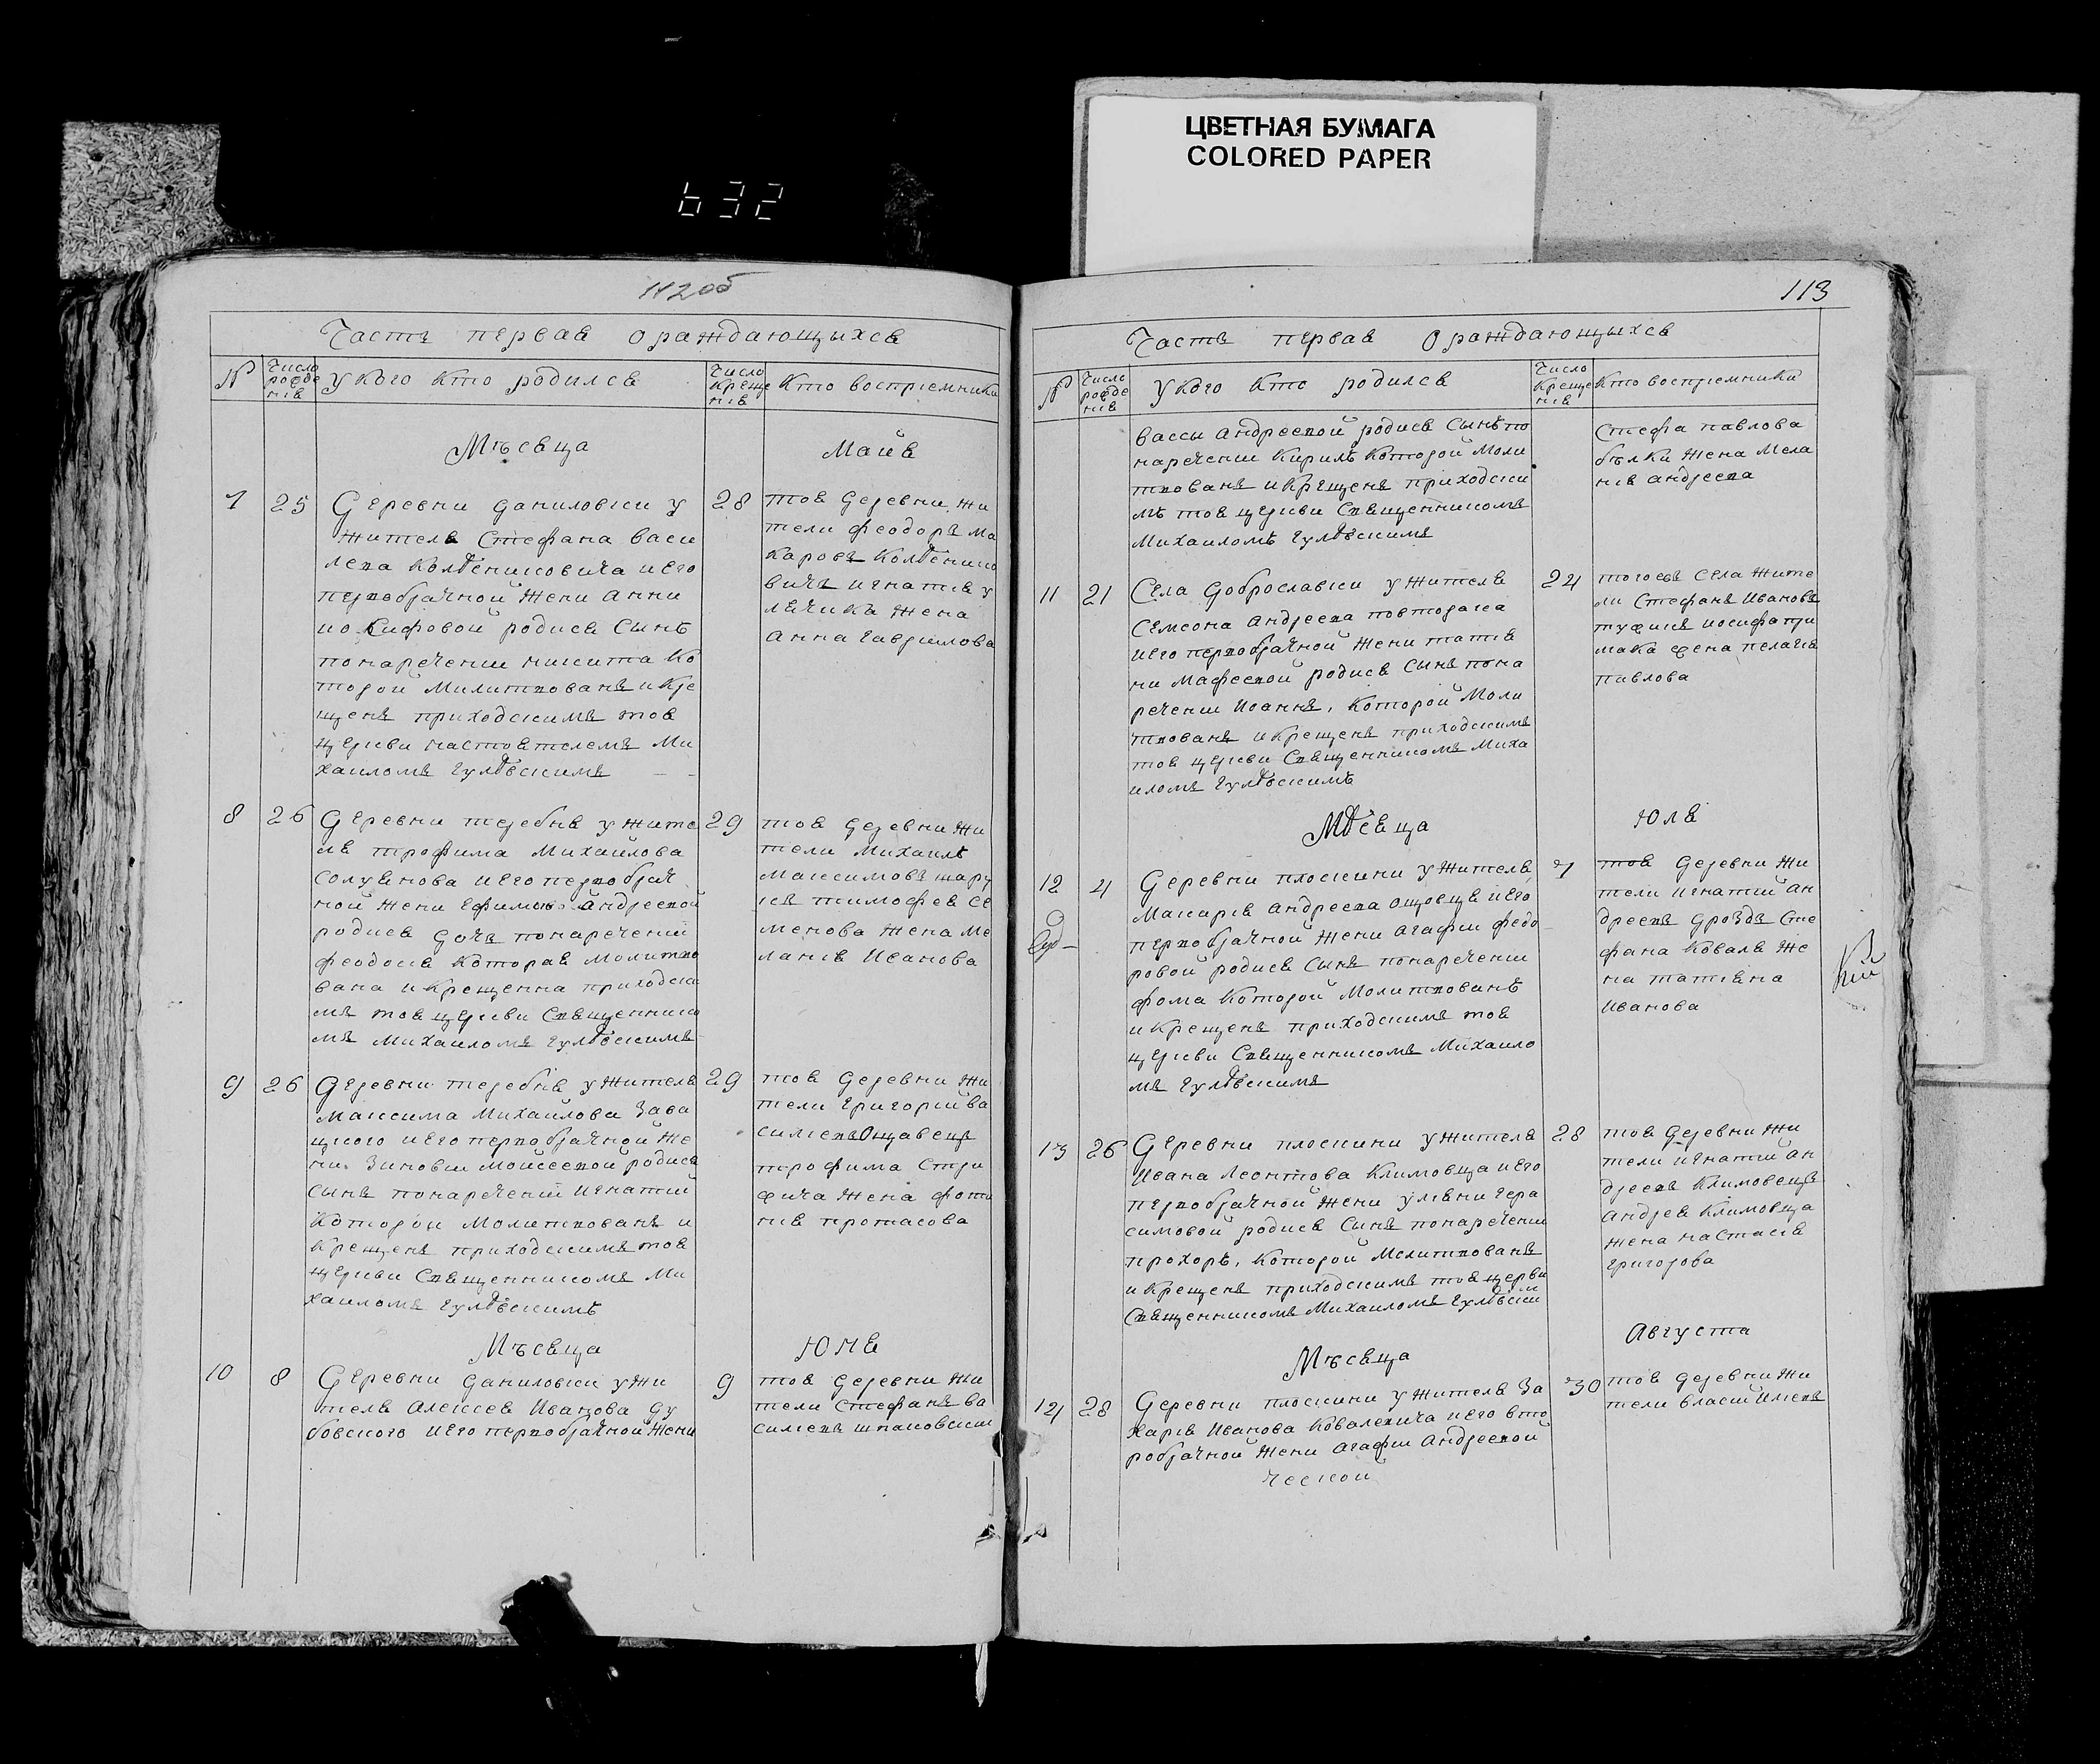 ЦВЕТНАЯ БУМАГА
COLORED PAPER
632
112об
Часть первая ораждающыхся
N
Число рожде нія
у кого кто родился
Число креще нія
Кто воспріемники
Мѣсяца
Маия
7 25
Деревни даниловки у
жителя Стефана васи
лева Колбѣнисовича иего
первобрачной жени анни
родися Сынъ
понаречении никита Ко
торой Милитвованъ икре
щенъ приходскимъ тоя
церкви настоятелемъ Ми
хаиломъ гулѣвскимъ
28
тоя деревни жи
тели феодоръ ма
каровъ
вичъ игнатія у
жена
анна гаврилова
8 26
Деревни теребня ужите
ля трофима Михайлова
иего первобрач
ной жени Ефимѣи Андреевой
родися дочь понаречении
феодосія Которая молитво
вана икрещенна приходски
мъ тоя церкви Священнико
мъ Михаиломъ гулѣвскимъ
29
тоя деревни жи
тели Михаилъ
Максимовъ шару
тимофея се
менова жена Ме
ланія Иванова
9 26
Деревни теребня ужителя
Максима Михайлова Зава
цкого иего первобрачной же
ни Зиновии Мойсеевой родися
сынъ понаречении игнатий
Которой Молитвованъ и
крещенъ приходскимъ тоя
церкви Священникомъ Ми
хаиломъ гулѣвскимъ
29
тоя деревни жи
тели григорий ва
силиевъ Ощавецъ
трофима Стри
жича жена фоти
нія протасова
Мѣсяца
Юня
10 8
Деревни даниловки ужи
теля Алексея Иванова ду
бовского иего первобрачной жени
9
тоя деревни жи
тели Стефанъ ва
силиевъ шпаковский
113
Часть первая ораждающыхся
N
Число рожде нія
у кого кто родился
Число креще нія
Кто воспріемники
вассы андреевой родися Сынъ по
наречении Кирилъ Которой Моли
твованъ икрещенъ приходски
мъ тоя церкви Священникомъ
Михаиломъ гулѣвскимъ
Стефа павлова
бѣлки жена Мела
нія андреева
11 21
Села доброславки ужителя
Семсона андреева повторака
иего первобрачной жени татія
ни Мафеевой родися Сынъ пона
речении Иоаннъ, Которой Моли
твованъ икрещенъ приходскимъ
тоя церкви Священникомъ Миха
иломъ гулѣвскимъ
24
тогожъ Села жите
ли Стефанъ Ивановъ
иосифа при
мака жена пелагія
павлова
Мѣсяца
Юля
12 4
Деревни плоскини ужителя
Макарія андреева ощовця иего
первобрачной жени агафии федо
ровой родися Сынъ понаречении
фома Которой Молитвованъ
икрещенъ приходскимъ тоя
церкви Священникомъ Михаило
мъ гулѣвскимъ
7
тоя деревни жи
тели игнатий ан
дреевъ дроздъ Сте
фана Коваля же
на татіяна
Иванова
13 26
Деревни плоскини ужителя
Ивана Леонтова Климовца иего
первобрачной жени уліяни гера
симовой родися Сынъ понаречении
прохоръ, Которой Молитвованъ
икрещенъ приходскимъ тоя церви
Священникомъ Михаиломъ гулѣвски
28
тоя деревни жи
тели игнатий ан
дреевъ Климовецъ
Андрея Климовца
жена настасія
григорова
Мѣсяца
Августа
14 28
Деревни плоскини ужителя За
харія Иванова Ковалевича иего вто
робрачной жени агафии Андреевой
30
тоя деревни жи
тели власий